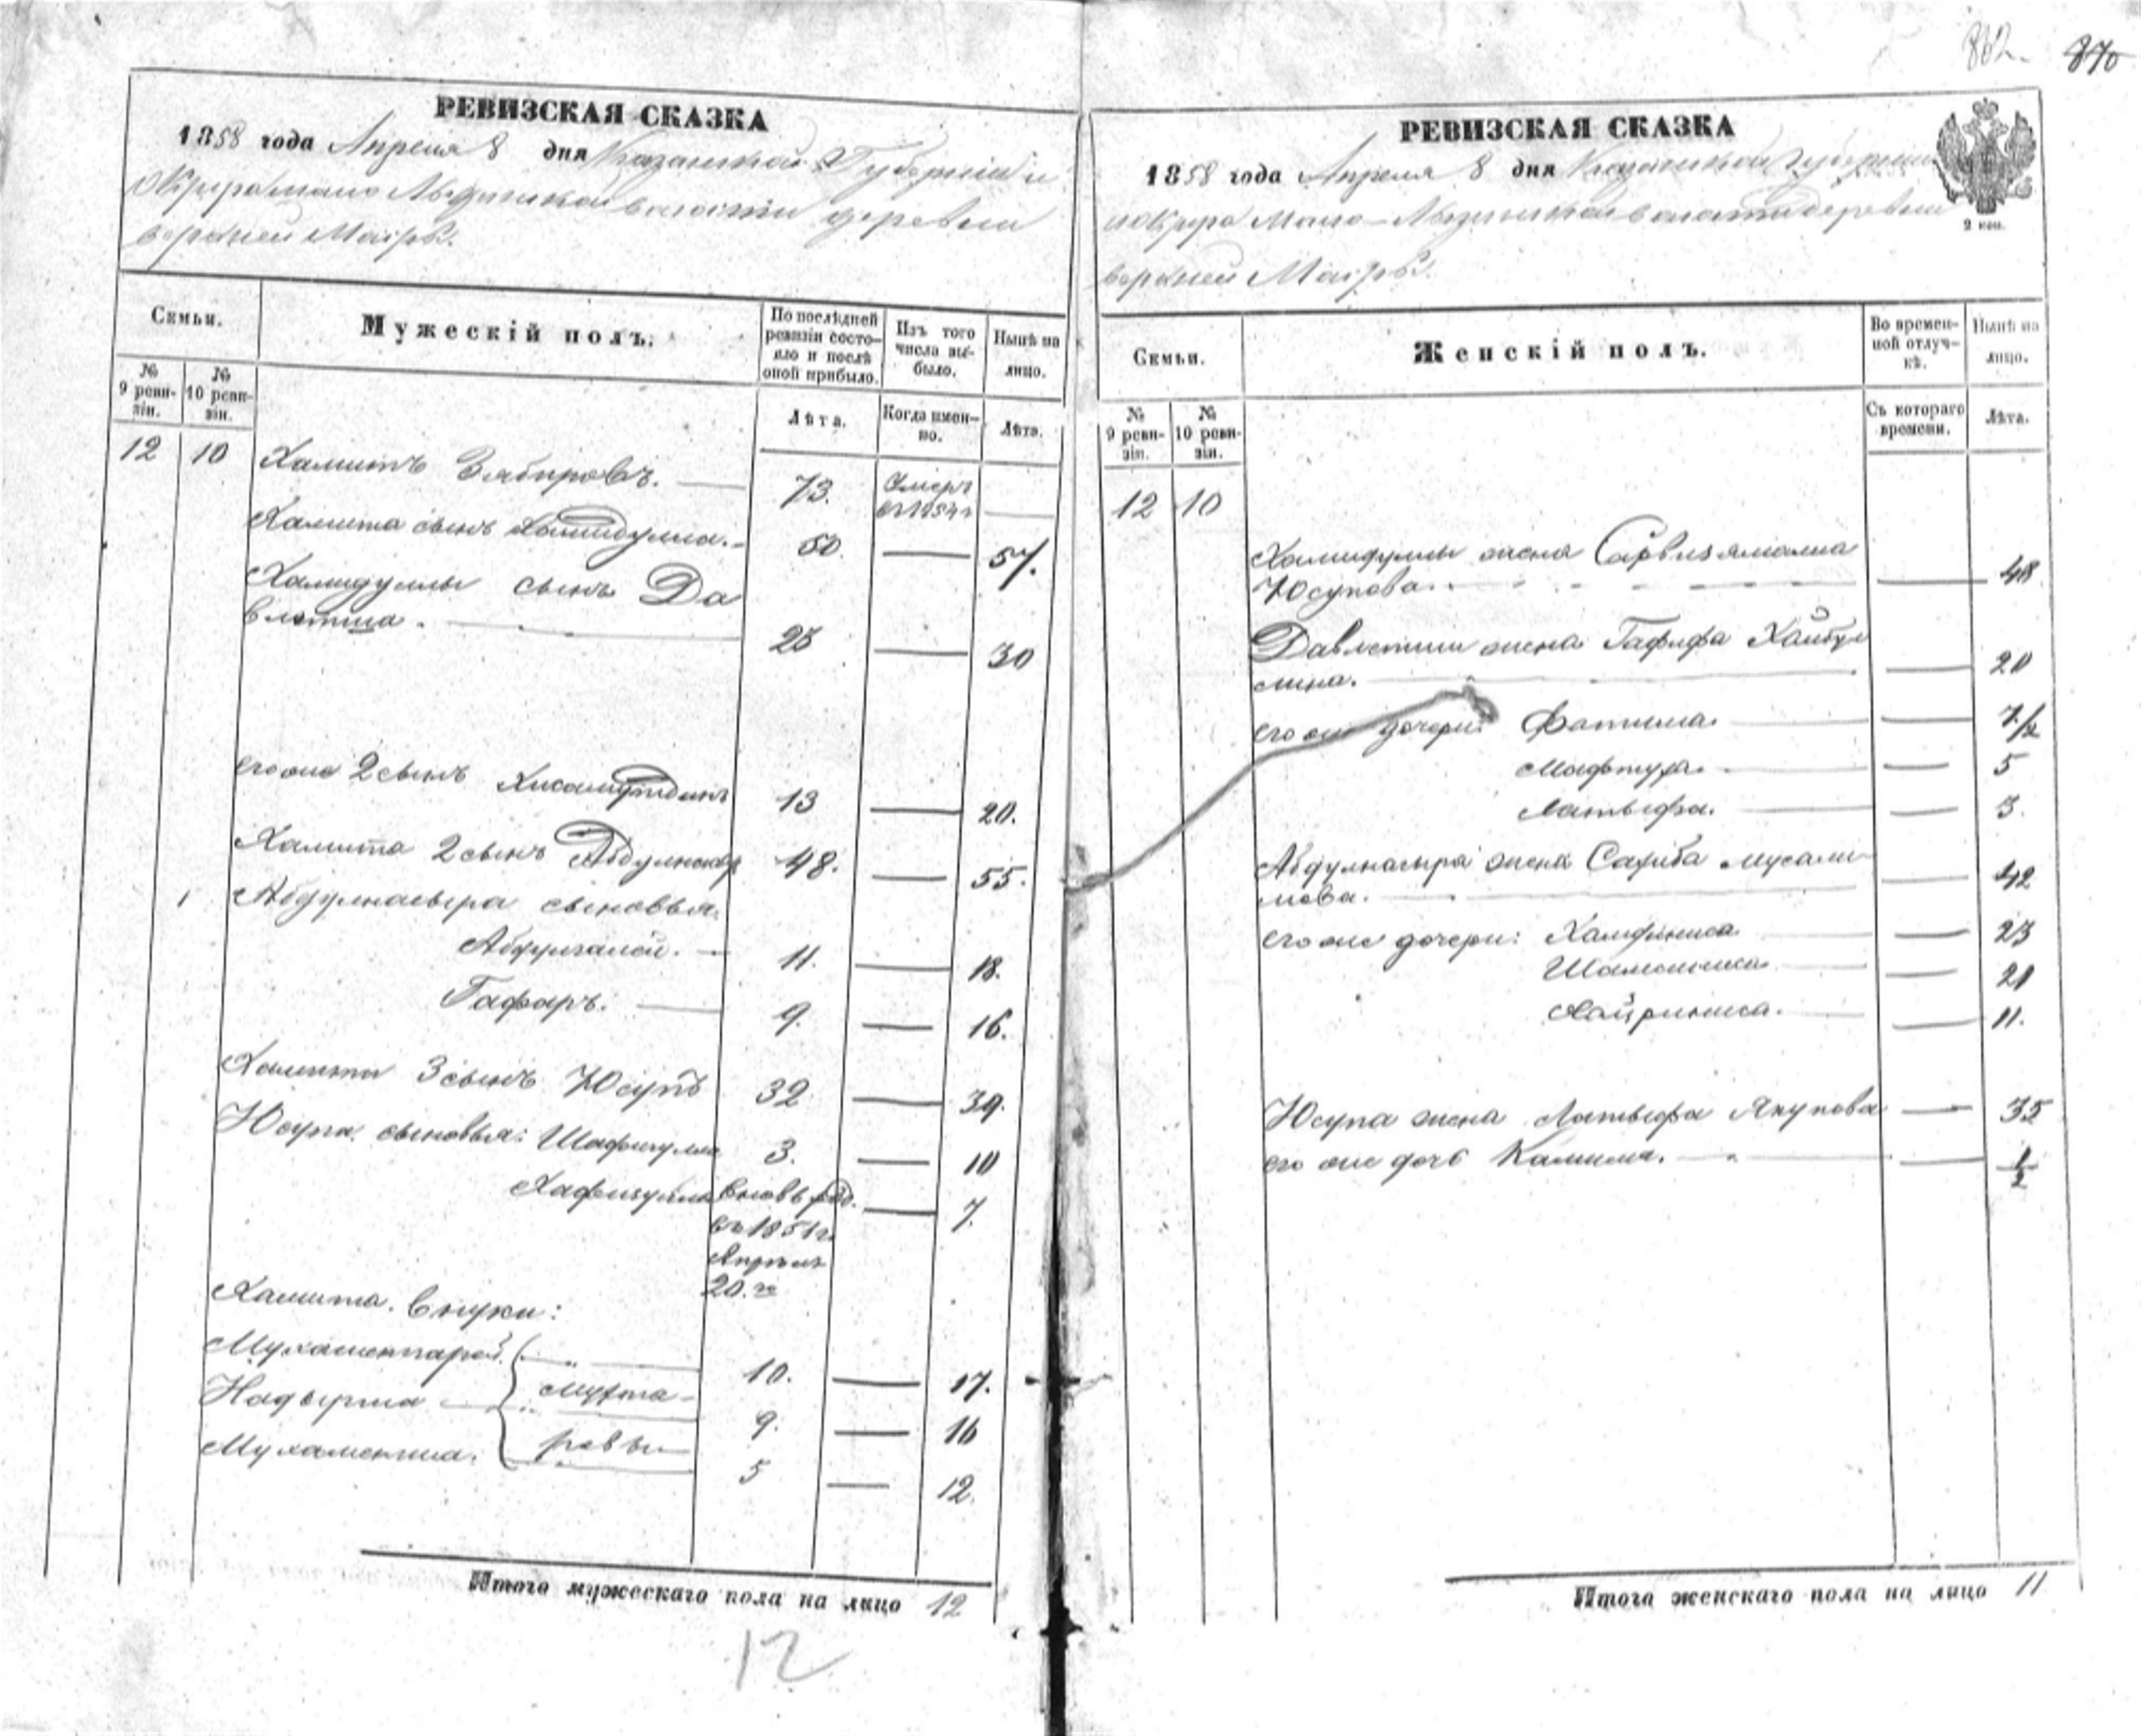 862. 870
РЕВИЗСКАЯ СКАЗКА
1858 года Апреля 8 дня Казанской Губернiи и
округа Мало Лызинской волости деревни
верхней Масры.
Семьи.
Мужескiй полъ.
По послѣдней ревизiи состояло и послѣ оной прибыло.
Изъ того числа выбыло.
Нынѣ на лицо.
№ 9 ревизiи.
№ 10 ревизiи.
Лѣта.
Когда именно.
Лѣта.
12 10 Хамитъ Зябировъ. 73. Умеръ въ 1854 г
Хамита сынъ Хамидулла. 50. 57.
Хамидуллы сынъ Да
влетша. 23 30
его же 2 сынъ Хисамутдинъ 13 20.
Хамита 2 сынъ Абдулнасыр 48. 55.
Абдулнасыра сыновья:
Абдулгалей. 11. 18.
Гафаръ. 9. 16.
Хамита 3 сынъ Юсупъ 32 39.
Юсупа сыновья: Шафигулла 3. 10
Хафизулла вновь рож. 7.
въ 1851 г.
Апреля
20. го
Хамита внуки:
Мухаметгарей 10. 17.
Надырша Мурта- 9. 16
Мухаметша. 5 12.
Итого мужескаго пола на лицо 12
12
РЕВИЗСКАЯ СКАЗКА
1858 года Апреля 8 дня Казанской Губернiи
и округа Мало-Лызинской волости деревни
верхней Масры.
2 коп.
Семьи.
Женскiй полъ.
Во временной отлучкѣ.
Нынѣ на лицо.
№ 9 ревизiи.
№ 10 ревизiи.
Съ котораго времени.
Лѣта.
12 10
Хамидуллы жена
Юсупова. 48.
Давлетши жена Гафифа Хайбул
лина. 20
его же дочери: Фатима. 7 1/2
Мафтуха. 5
Латыфа. 3.
Абдулнасыра жена Сахиба Мусали-
мова. 42
его же дочери: 23
21
Хайриниса. 11.
Юсупа жена Латыфа Якупова 35
его же дочь Камиля. 1/2
Итого женскаго пола на лицо 11